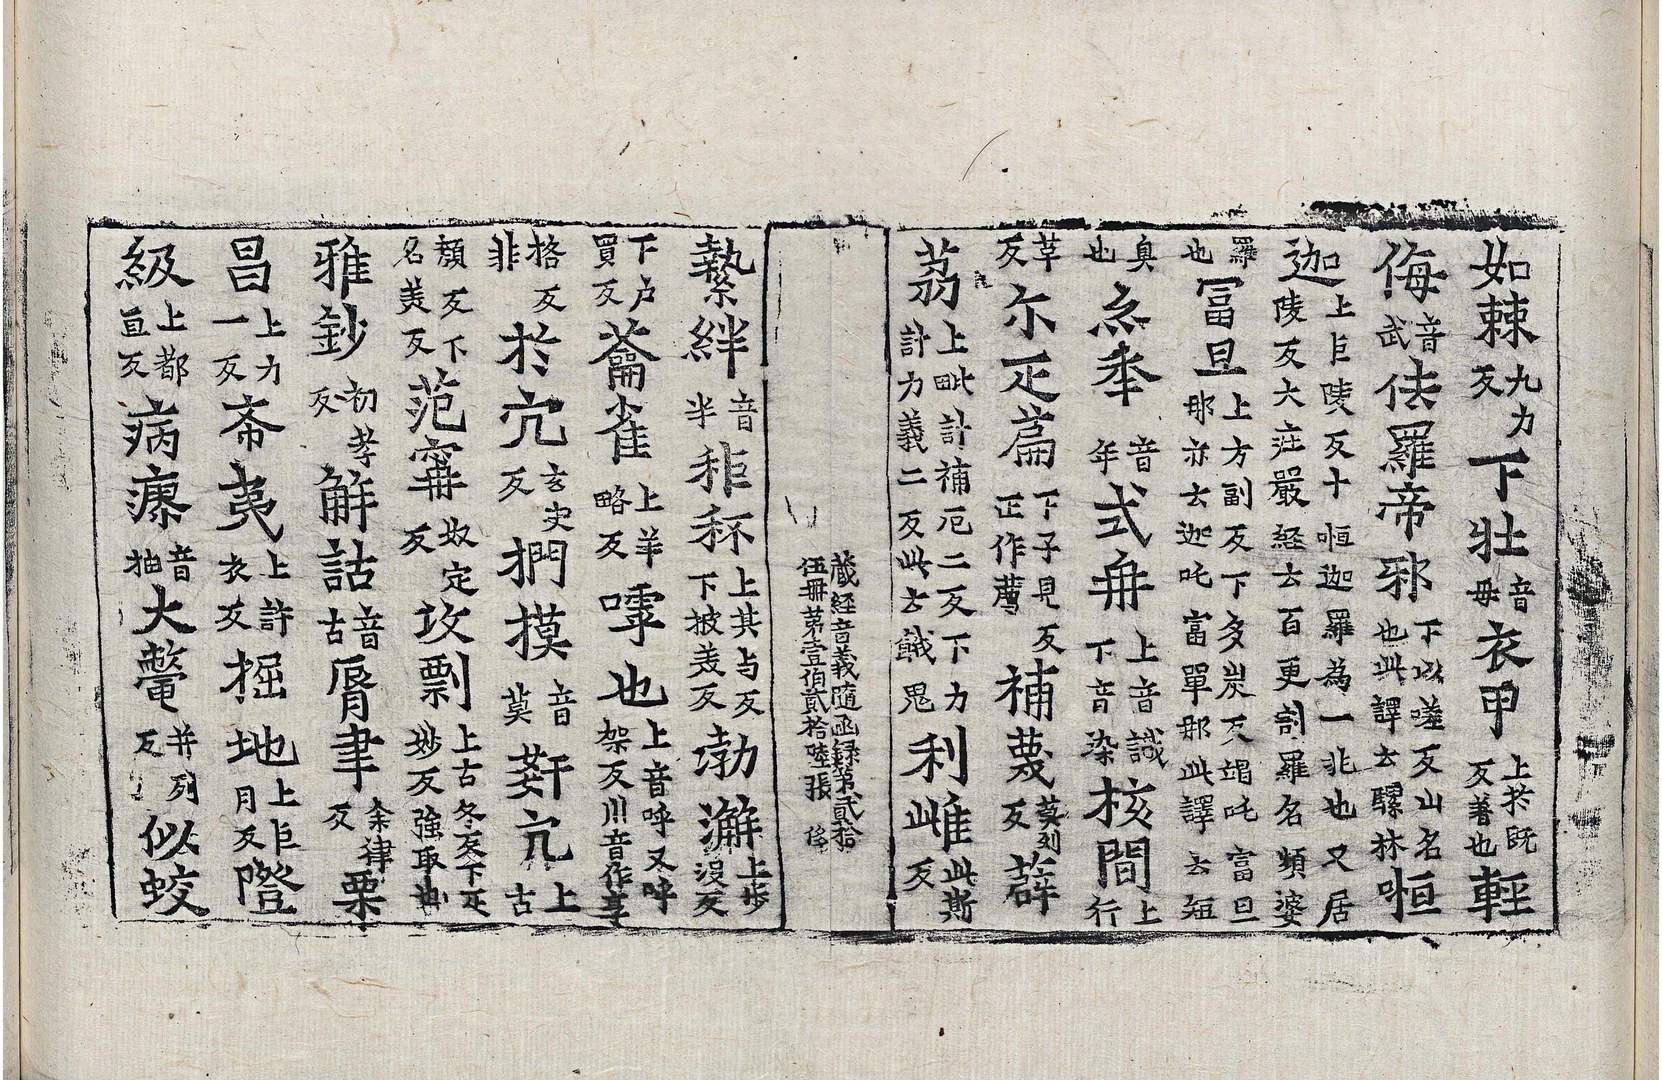 如棘九力反下壯音毋衣甲上於既反著也輕
侮音武佉羅帝邪下以嗟反山名也此譯云騾林㘈
迦上巨陵反十㘈迦羅為一兆也又居陵反大莊嚴經云百更割羅名頻婆
羅也冨旦上方副反下多炭反竭吒富旦那亦云迦吒富單那此譯云短
臭也𠅘秊音年式冉上音識下音染核間上行
革反尓疋篇下子見反正作薦補蔑莫列反薜
荔上毗計補厄二反下力計力義二反此云餓鬼利雌此斯反
藏經音義隨函録第貳拾
伍冊第壹伯貳拾陸張 俊
縶絆音半秬秠上其与反下披美反渤澥上步没反
下户買反蘥雀上羊略反嘑也上音呼又呼架反川音作㝬
格反非於宂玄决反捫摸音莫姧宂上古
顏反下名美反范甯奴定反攻剽上古冬反下疋妙反強取也
雅鈔初孝反解詁音古脣聿余律反栗
昌上力一反斎夷上許衣反掘地上巨月反隥
級上都亘反病瘃音抽大鼈并列反似蛟